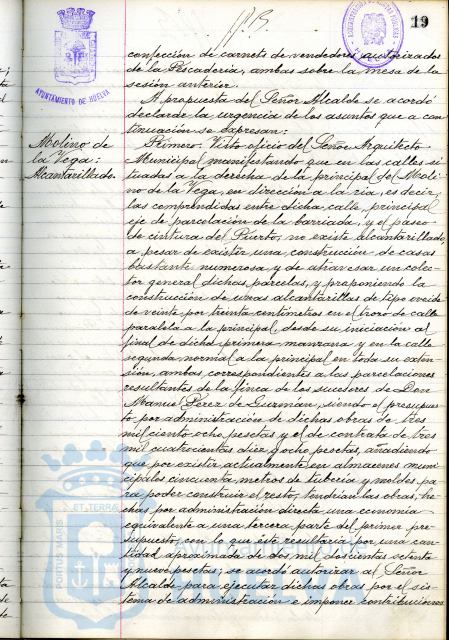 19
AYUNTAMIENTO DE HUELVA
confección de carnets de vendedores autorizados
de la Pescadería, ambas sobre la mesa de la
sesión anterior.
A propuesta del Señor Alcalde se acordó
declarar la urgencia de los asuntos que a con
tinuación se expresan:
Molino de
la Vega:
Alcantarillado.
Primero. Visto oficio del Señor Arquitecto
Municipal manifestando que en las calles si
tuadas a la derecha de la principal del Moli
no de la Vega, en dirección a la ria, es decir,
las comprendidas entre dicha calle, principal
eje de parcelación de la barriada, y el paseo
de cintura del Puerto, no existe alcantarillado,
a pesar de existir una construcción de casas
bastante numerosa y de atravesar un colec
tor general dichas parcelas, y proponiendo la
construcción de unas alcantarillas de tipo ovoide
de veinte por treinta centímetros en el trozo de calle
paralela a la principal, desde su iniciación al
final de dicha primera manzana y en la calle
segunda normal a la principal en toda su exten
sión, ambas correspondientes a las parcelaciones
resultantes de la finca de los sucesores de Don
Manuel Pérez de Guzmán, siendo el presupues
to por administración de dichas obras de tres
mil ciento ocho pesetas y el de contrata de tres
mil cuatrocientas diez y ocho pesetas, añadiendo
que por existir actualmente en almacenes muni
cipales cincuenta metros de tubería y moldes pa
ra poder construir el resto, tendrían las obras, he
chas por administración directa una economía
equivalente a una tercera parte del primer pre
supuesto, con lo que éste resultaría por una can
tidad aproximada de dos mil doscientas setenta
y nueve pesetas; se acordó autorizar al Señor
Alcalde para ejecutar dichas obras por el sis
tema de administración e imponer contribuciones
PORTUS MARIS ET TERRAE